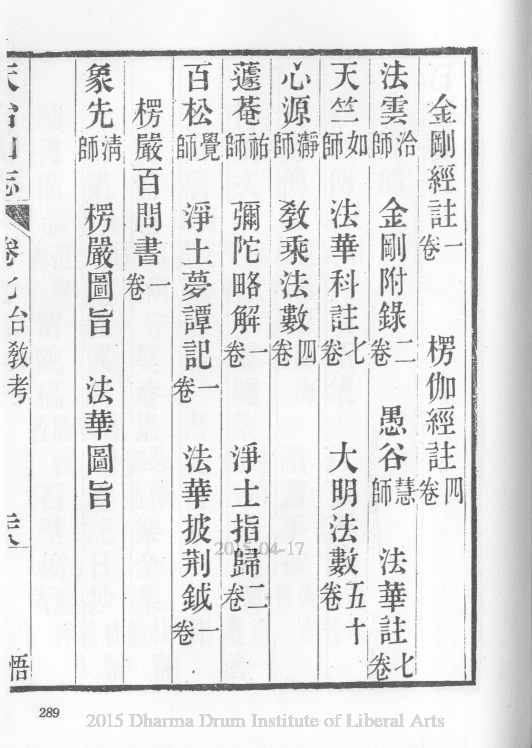 金剛經註一卷 楞伽經註四卷
法雲洽師 金剛附錄二卷 愚谷慧師 法華註七卷
天竺如師 法華科註七卷 大明法數五十卷
心源瀞師 教乘法數四卷
蘧菴祐師 彌陀略解一卷 淨土指歸二卷
百松覺師 淨土夢譚記一卷 法華披荆鉞一卷
楞嚴百問書一卷
象先清師 楞嚴圖旨 法華圖旨
天台山志 卷七台教考 悟
2015-04-17
289
2015 Dharma Drum Institute of Liberal Arts